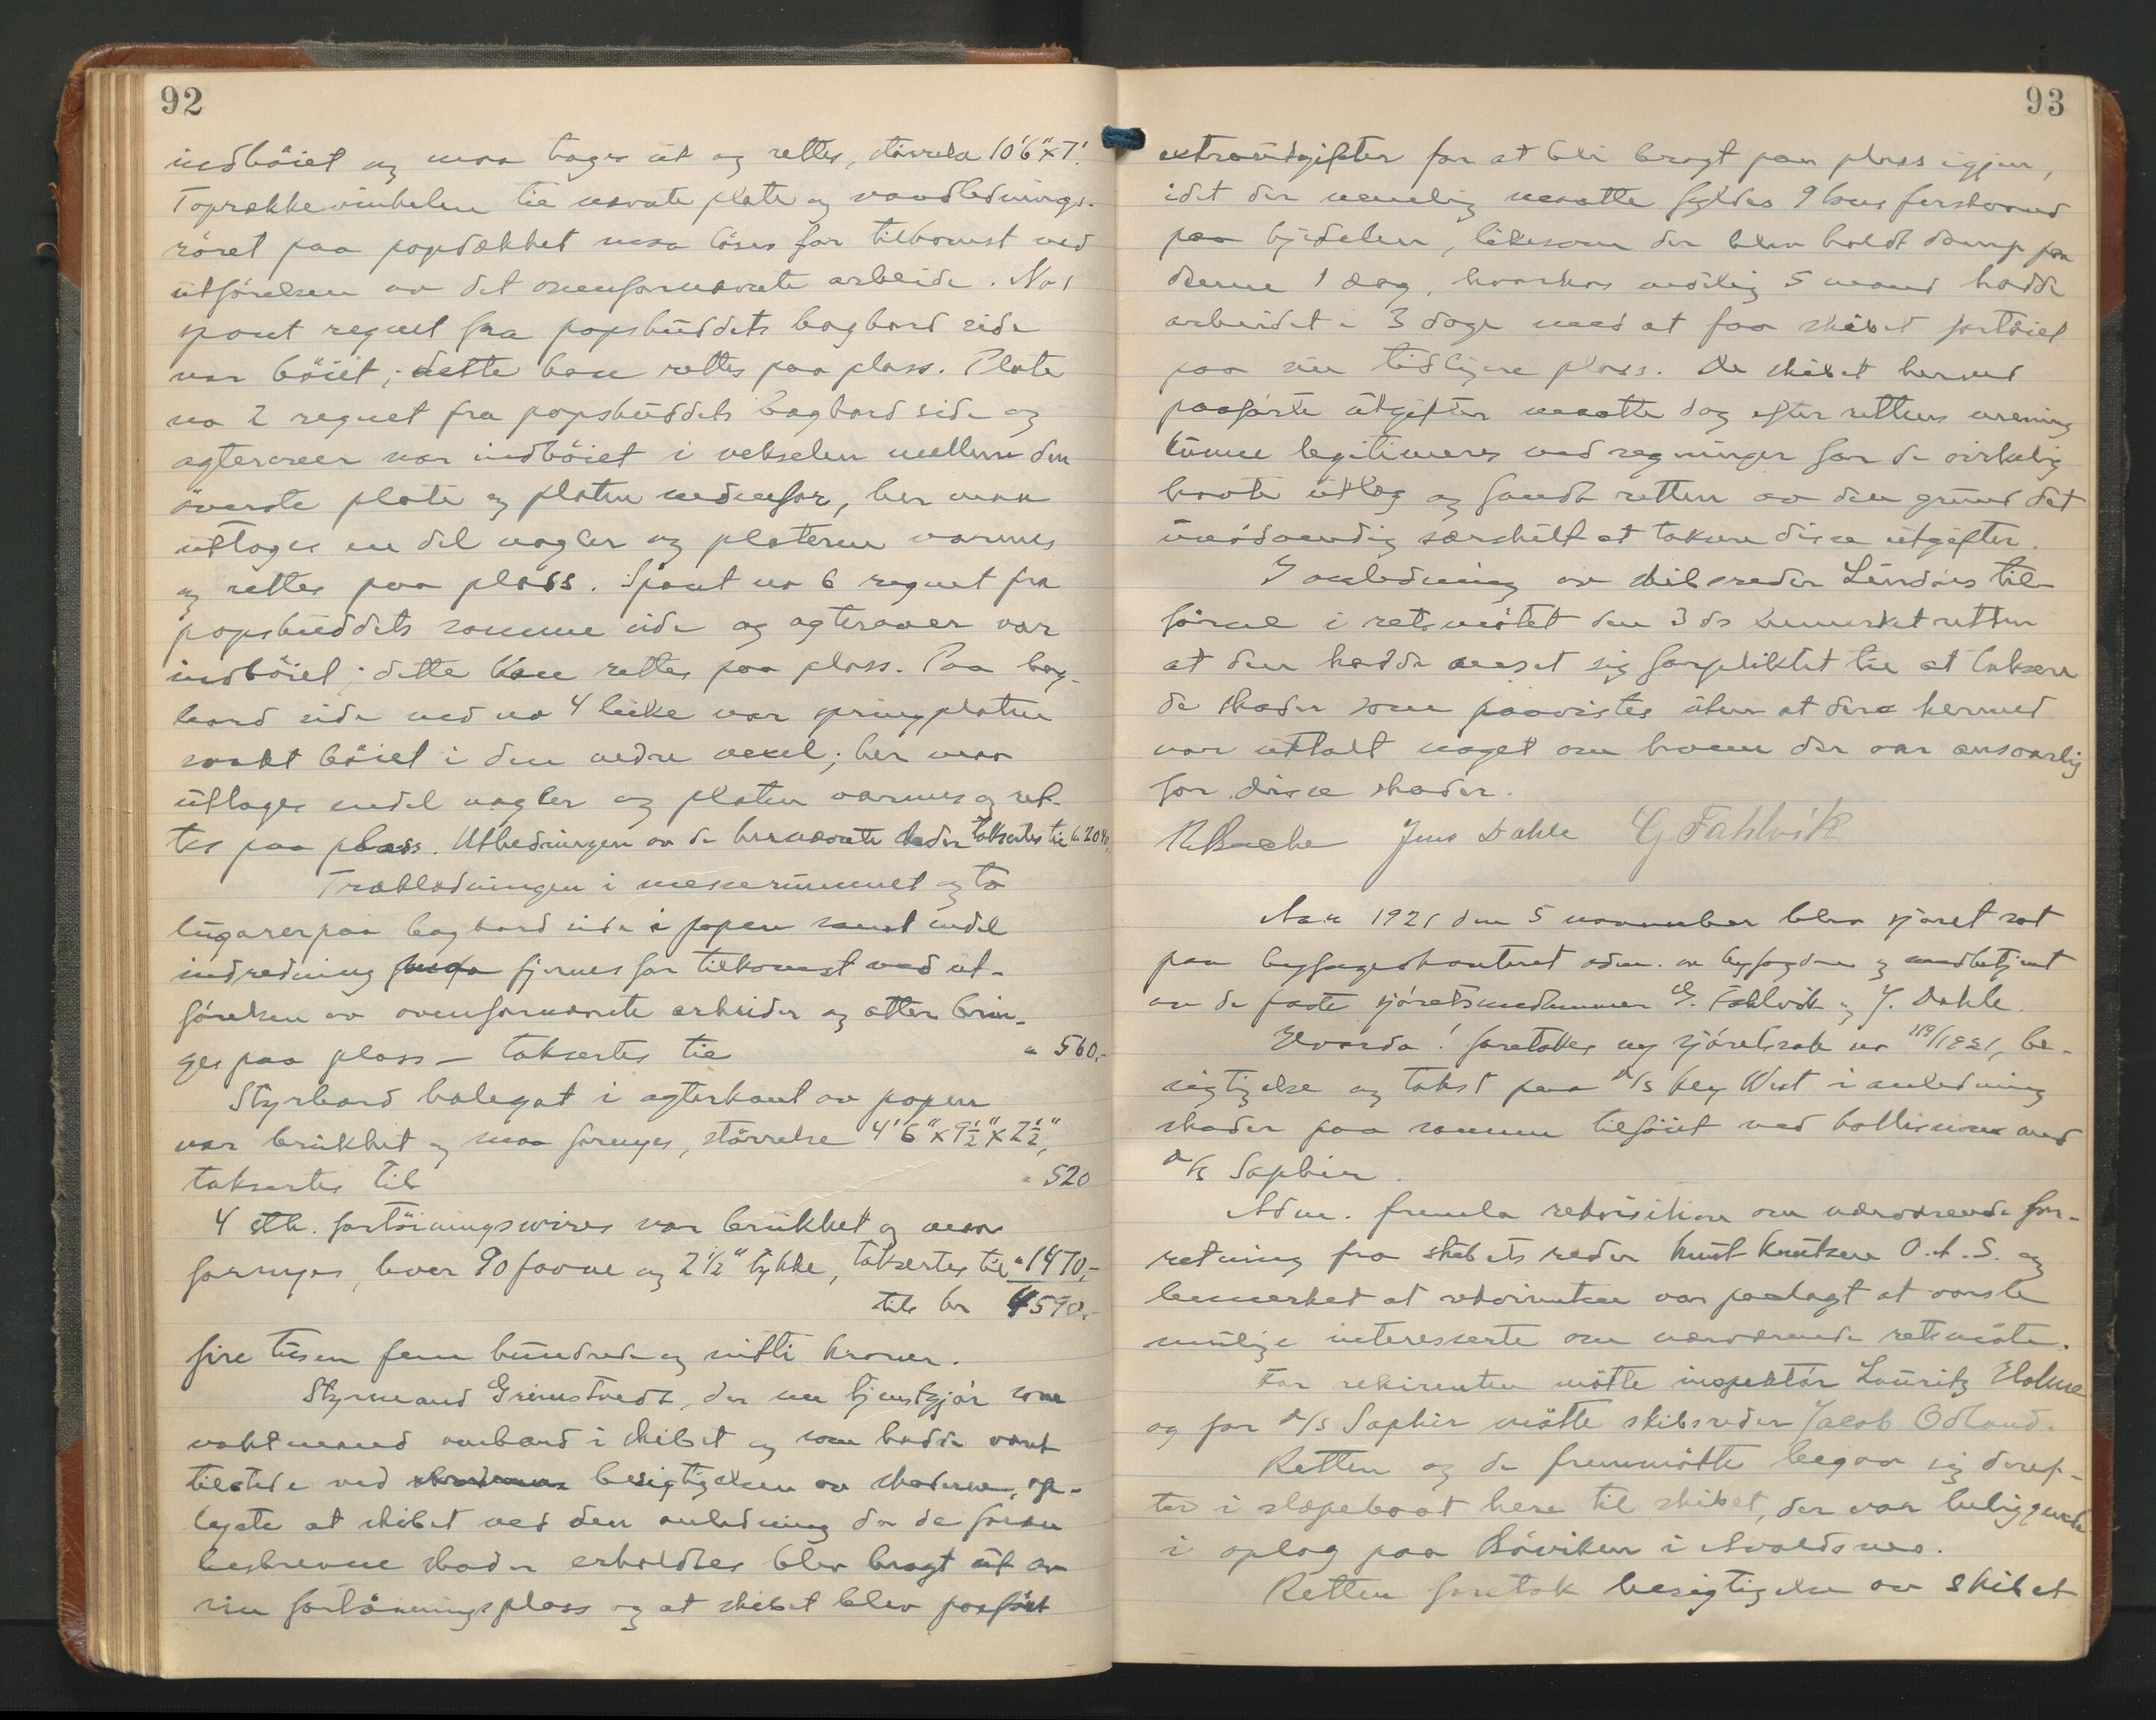 92
indböiet og maa tages ut og rettes, störrelse 10'6" x 7'.
Toprækkevinkelen til nævnte plate og vandlednings-
röret paa popdækket maa löses for tilkomst ved
utförelsen av det ovenfornævnte arbeide. No 1
spant regnet fra popskuddets bagbord side
var böiet; dette kan rettes paa plass. Plate
no 2 regnet fra popskuddets bagbord side og
agterover var indböiet i vekselen mellem den
överste plate og platen nedenfor, her maa
uttages en del nagler og platerne varmes
og rettes paa plass. Spant no 6 regnet fra
popskuddets samme side og agterover var
indböiet; dette kan rettes paa plass. Paa bag-
bord side ved no 4 luke var springplaten
svakt böiet i den nedre veksel; her maa
uttages endel nagler og platen varmes og ret-
tes paa plass. Utbedringen av de hernævnte skader taksertes til kr. 2040,-
Træklædningen i messerummet og to
lugarer paa bagbord side i popen samt endel
indredning fjernes for tilkomst ved ut-
förelsen av ovenfornævnte arbeider og atter brin-
ges paa plass — taksertes til " 560,-
Styrbord halegat i agterkant av popen
var brukket og maa fornyes, störrelse 4'6" x 9½" x 2½",
taksertes til " 520
4 stk. fortöiningswires var brukket og maa
fornyes, hver 90 favne og 2½" tykke, taksertes til " 1470,-
tils kr 4590.-
fire tusen fem hundrede og nitti kroner.
Styrmand Grimstvedt, der nu tjenstgjör som
vaktmand ombord i skibet og som hadde vært
tilstede ved besigtigelsen av skaderne, op-
lyste at skibet ved den anledning da de foran
beskrevne skader erholdtes blev bragt ut av
sin fortöiningsplass og at skibet blev paafört
93
extrautgifter for at bli bragt paa plass igjen,
idet der nemlig maatte fyldes 9 tons ferskvand
paa kjedelen, likesom der blev holdt damp paa
denne 1 dag, hvorhos endelig 5 mand hadde
arbeidet i 3 dage med at faa skibet fortöiet
paa sin tidligere plass. De skibet herved
paaförte utgifter maatte dog efter rettens mening
kunne legitimeres ved regninger for de virkelig
havte utlæg og fandt retten av den grund det
unödvendig særskilt at taksere disse utgifter.
I anledning av skibsreder Lindøes til-
försel i retsmötet den 3 ds bemerket retten
at den hadde anset sig forpliktet til at taksere
de skader som paavistes uten at dere hermed
var uttalt noget om hvem der var ansvarlig
for disse skader.
R Bache Jens Dahle G Fahlvik
Aar 1921 den 5 november blev sjöret sat
paa byfogedkontoret adm. av byfogden og medbetjent
av de faste sjöretsmedlemmer G. Fahlvik og J. Dahle.
Hvorda! foretokes ny sjöretssak no 119/1921, be-
sigtigelse og takst paa D/S Key West i anledning
skader paa samme tilföiet ved kollision med
D/S Saphir.
Adm. fremla rekvisition om nærværende for-
retning fra skibets reder Knut Knutsen O.A.S. og
bemerket at rekvirenten var paalagt at varsle
mulige interesserte om nærværende retsmöte.
For rekvirenten mötte inspektör Lauritz Holme
og for D/S Saphir mötte skibsreder Jacob Odland.
Retten og de fremmötte begav sig deref-
ter i slæpebaat hen til skibet, der var beliggende
i oplag paa Böviken i Avaldsnes.
Retten foretok besigtigelse av skibet